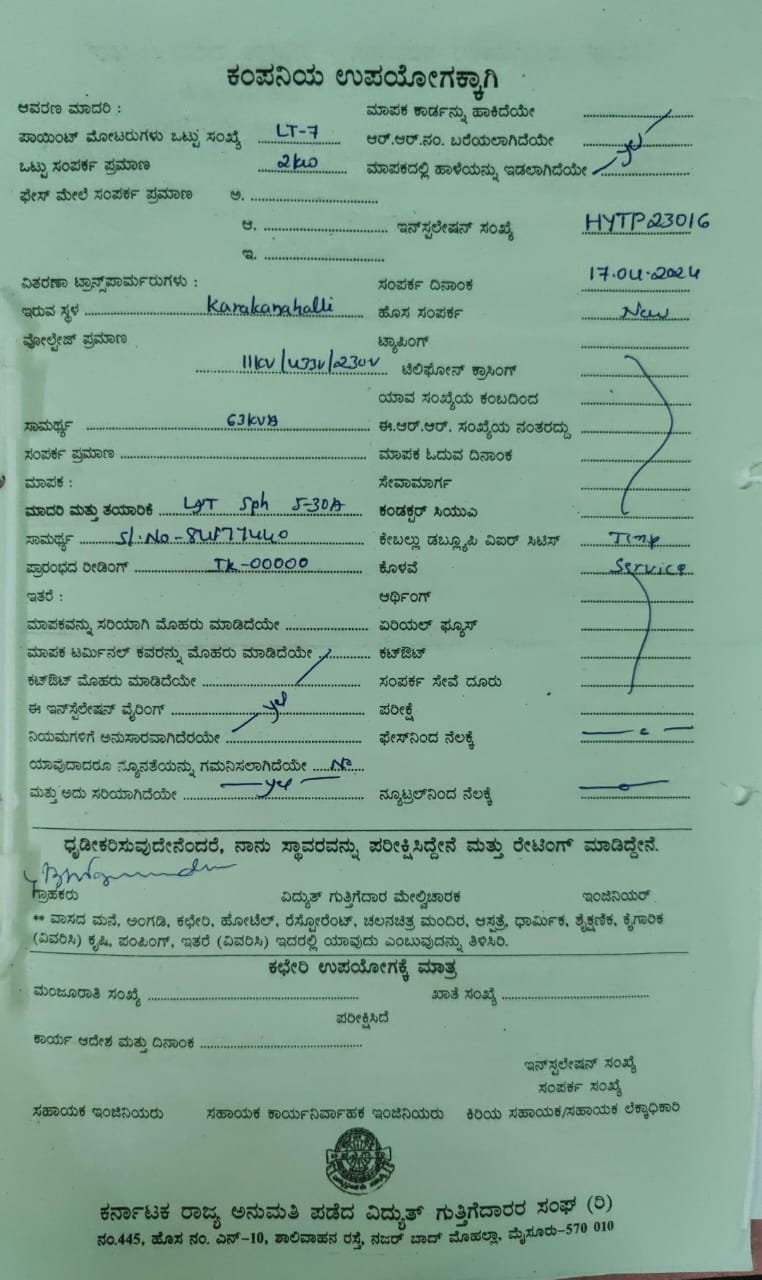 ಕಂಪನಿಯ ಉಪಯೋಗಕ್ಕಾಗಿ
ಆವರಣ ಮಾದರಿ : ಮಾಪಕ ಕಾರ್ಡನ್ನು ಹಾಕಿದೆಯೇ
ಪಾಯಿಂಟ್ ಮೋಟರುಗಳು ಒಟ್ಟು ಸಂಖ್ಯೆ LT-7 ಆರ್.ಆರ್.ನಂ. ಬರೆಯಲಾಗಿದೆಯೇ yes
ಒಟ್ಟು ಸಂಪರ್ಕ ಪ್ರಮಾಣ 2kw ಮಾಪಕದಲ್ಲಿ ಹಾಳೆಯನ್ನು ಇಡಲಾಗಿದೆಯೇ
ಫೇಸ್ ಮೇಲೆ ಸಂಪರ್ಕ ಪ್ರಮಾಣ ಅ.
ಆ. ಇನ್‌ಸ್ಟಲೇಷನ್ ಸಂಖ್ಯೆ HYTP23016
ಇ.
ವಿತರಣಾ ಟ್ರಾನ್ಸ್‌ಪಾರ್ಮರುಗಳು : ಸಂಪರ್ಕ ದಿನಾಂಕ 17.04.2024
ಇರುವ ಸ್ಥಳ Karakanahalli ಹೊಸ ಸಂಪರ್ಕ New
ವೋಲ್ಟೇಜ್ ಪ್ರಮಾಣ ಟ್ಯಾಪಿಂಗ್
11kV/433V/230V ಟೆಲಿಫೋನ್ ಕ್ರಾಸಿಂಗ್
ಯಾವ ಸಂಖ್ಯೆಯ ಕಂಬದಿಂದ
ಸಾಮರ್ಥ್ಯ 63kVA ಈ.ಆರ್.ಆರ್. ಸಂಖ್ಯೆಯ ನಂತರದ್ದು
ಸಂಪರ್ಕ ಪ್ರಮಾಣ ಮಾಪಕ ಓದುವ ದಿನಾಂಕ
ಮಾಪಕ : ಸೇವಾಮಾರ್ಗ
ಮಾದರಿ ಮತ್ತು ತಯಾರಿಕೆ L&T Sph 5-30A ಕಂಡಕ್ಟರ್ ಸಿಯುಎ
ಸಾಮರ್ಥ್ಯ Sl.No- ಕೇಬಲ್ಲು ಡಬ್ಲ್ಯೂಪಿ ವಿಐರ್ ಸಿಟಿಸ್ Temp
ಪ್ರಾರಂಭದ ರೀಡಿಂಗ್ IR-00000 ಕೊಳವೆ Service
ಇತರೆ : ಆರ್ಥಿಂಗ್
ಮಾಪಕವನ್ನು ಸರಿಯಾಗಿ ಮೊಹರು ಮಾಡಿದೆಯೇ ಏರಿಯಲ್ ಫ್ಯೂಸ್
ಮಾಪಕ ಟರ್ಮಿನಲ್ ಕವರನ್ನು ಮೊಹರು ಮಾಡಿದೆಯೇ ಕಟ್‌ಔಟ್
ಕಟ್‌ಔಟ್ ಮೊಹರು ಮಾಡಿದೆಯೇ ಸಂಪರ್ಕ ಸೇವೆ ದೂರು
ಈ ಇನ್‌ಸ್ಟಲೇಷನ್ ವೈರಿಂಗ್ yes ಪರೀಕ್ಷೆ
ನಿಯಮಗಳಿಗೆ ಅನುಸಾರವಾಗಿದೆರಯೇ ಫೇಸ್‌ನಿಂದ ನೆಲಕ್ಕೆ
ಯಾವುದಾದರೂ ನ್ಯೂನತೆಯನ್ನು ಗಮನಿಸಲಾಗಿದೆಯೇ No
ಮತ್ತು ಅದು ಸರಿಯಾಗಿದೆಯೇ yes ನ್ಯೂಟ್ರಲ್‌ನಿಂದ ನೆಲಕ್ಕೆ
ಧೃಡೀಕರಿಸುವುದೇನೆಂದರೆ, ನಾನು ಸ್ಥಾವರವನ್ನು ಪರೀಕ್ಷಿಸಿದ್ದೇನೆ ಮತ್ತು ರೇಟಿಂಗ್ ಮಾಡಿದ್ದೇನೆ.
ಗ್ರಾಹಕರು ವಿದ್ಯುತ್ ಗುತ್ತಿಗೆದಾರ ಮೇಲ್ವಿಚಾರಕ ಇಂಜಿನಿಯರ್
** ವಾಸದ ಮನೆ, ಅಂಗಡಿ, ಕಛೇರಿ, ಹೋಟೆಲ್, ರೆಸ್ಟೋರೆಂಟ್, ಚಲನಚಿತ್ರ ಮಂದಿರ, ಆಸ್ಪತ್ರೆ, ಧಾರ್ಮಿಕ, ಶೈಕ್ಷಣಿಕ, ಕೈಗಾರಿಕ
(ವಿವರಿಸಿ) ಕೃಷಿ, ಪಂಪಿಂಗ್, ಇತರೆ (ವಿವರಿಸಿ) ಇದರಲ್ಲಿ ಯಾವುದು ಎಂಬುವುದನ್ನು ತಿಳಿಸಿರಿ.
ಕಛೇರಿ ಉಪಯೋಗಕ್ಕೆ ಮಾತ್ರ
ಮಂಜೂರಾತಿ ಸಂಖ್ಯೆ ಖಾತೆ ಸಂಖ್ಯೆ
ಪರೀಕ್ಷಿಸಿದೆ
ಕಾರ್ಯ ಆದೇಶ ಮತ್ತು ದಿನಾಂಕ
ಇನ್‌ಸ್ಟಲೇಷನ್ ಸಂಖ್ಯೆ
ಸಂಪರ್ಕ ಸಂಖ್ಯೆ
ಸಹಾಯಕ ಇಂಜಿನಿಯರು ಸಹಾಯಕ ಕಾರ್ಯನಿರ್ವಾಹಕ ಇಂಜಿನಿಯರು ಕಿರಿಯ ಸಹಾಯಕ/ಸಹಾಯಕ ಲೆಕ್ಕಾಧಿಕಾರಿ
ಕರ್ನಾಟಕ ರಾಜ್ಯ ಅನುಮತಿ ಪಡೆದ ವಿದ್ಯುತ್ ಗುತ್ತಿಗೆದಾರರ ಸಂಘ (ರಿ)
ನಂ.445, ಹೊಸ ನಂ. ಎನ್-10, ಶಾಲಿವಾಹನ ರಸ್ತೆ, ನಜರ್ ಬಾದ್ ಮೊಹಲ್ಲಾ, ಮೈಸೂರು-570 010